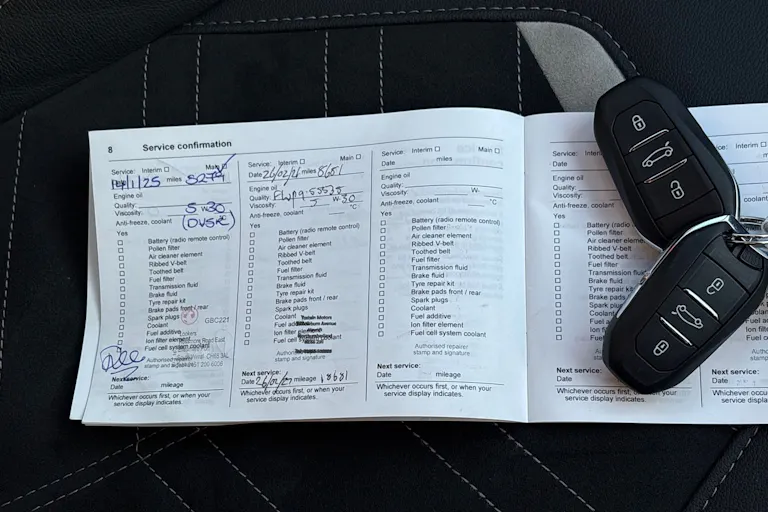 8 Service confirmation
Service: Interim Main
/1/25 miles 5274
Engine oil
Quality:
Viscosity: 5W30
Anti-freeze, coolant
Yes
Battery (radio remote control)
Pollen filter
Air cleaner element
Ribbed V-belt
Toothed belt
Fuel filter
Transmission fluid
Brake fluid
Tyre repair kit
Brake pads front / rear
Spark plugs
Coolant GBC221
Fuel additive
Ion filter element
Fuel cell system coolant
Authorised repairer
stamp and signature
Next service:
Date mileage
Whichever occurs first, or when your
service display indicates.
Service: Interim Main
Date 26/02/26 miles 8681
Engine oil
Quality:
Viscosity: W-30
Anti-freeze, coolant °C
Yes
Battery (radio remote control)
Pollen filter
Air cleaner element
Ribbed V-belt
Toothed belt
Fuel filter
Transmission fluid
Brake fluid
Tyre repair kit
Brake pads front / rear
Spark plugs
Coolant
Fuel
Ion filter
Fuel cell coolant
stamp and signature
Next service:
Date 26/02/27 mileage 18681
Whichever occurs first, or when your
service display indicates.
Service: Interim Main
Date miles
Engine oil
Quality:
Viscosity: W-
Anti-freeze, coolant °C
Yes
Battery (radio remote control)
Pollen filter
Air cleaner element
Ribbed V-belt
Toothed belt
Fuel filter
Transmission fluid
Brake fluid
Tyre repair kit
Brake pads front / rear
Spark plugs
Coolant
Fuel additive
Ion filter element
Fuel cell system coolant
Authorised repairer
stamp and signature
Next service:
Date mileage
Whichever occurs first, or when your
service display indicates.
Service: Interim
Date
Engine oil
Quality:
Viscosity:
Anti-freeze, coolant
Yes
Battery (radio
Pollen filter
Air cleaner element
Ribbed V-belt
Toothed belt
Fuel filter
Transmission fluid
Brake fluid
Tyre repair kit
Brake pads
Spark plugs
Coolant
Fuel additive
Ion filter
Fuel cell
stamp and
Next service:
Date mileage
Whichever occurs first, or when your
service display indicates.
Next service:
Date
Whichever occurs
service display